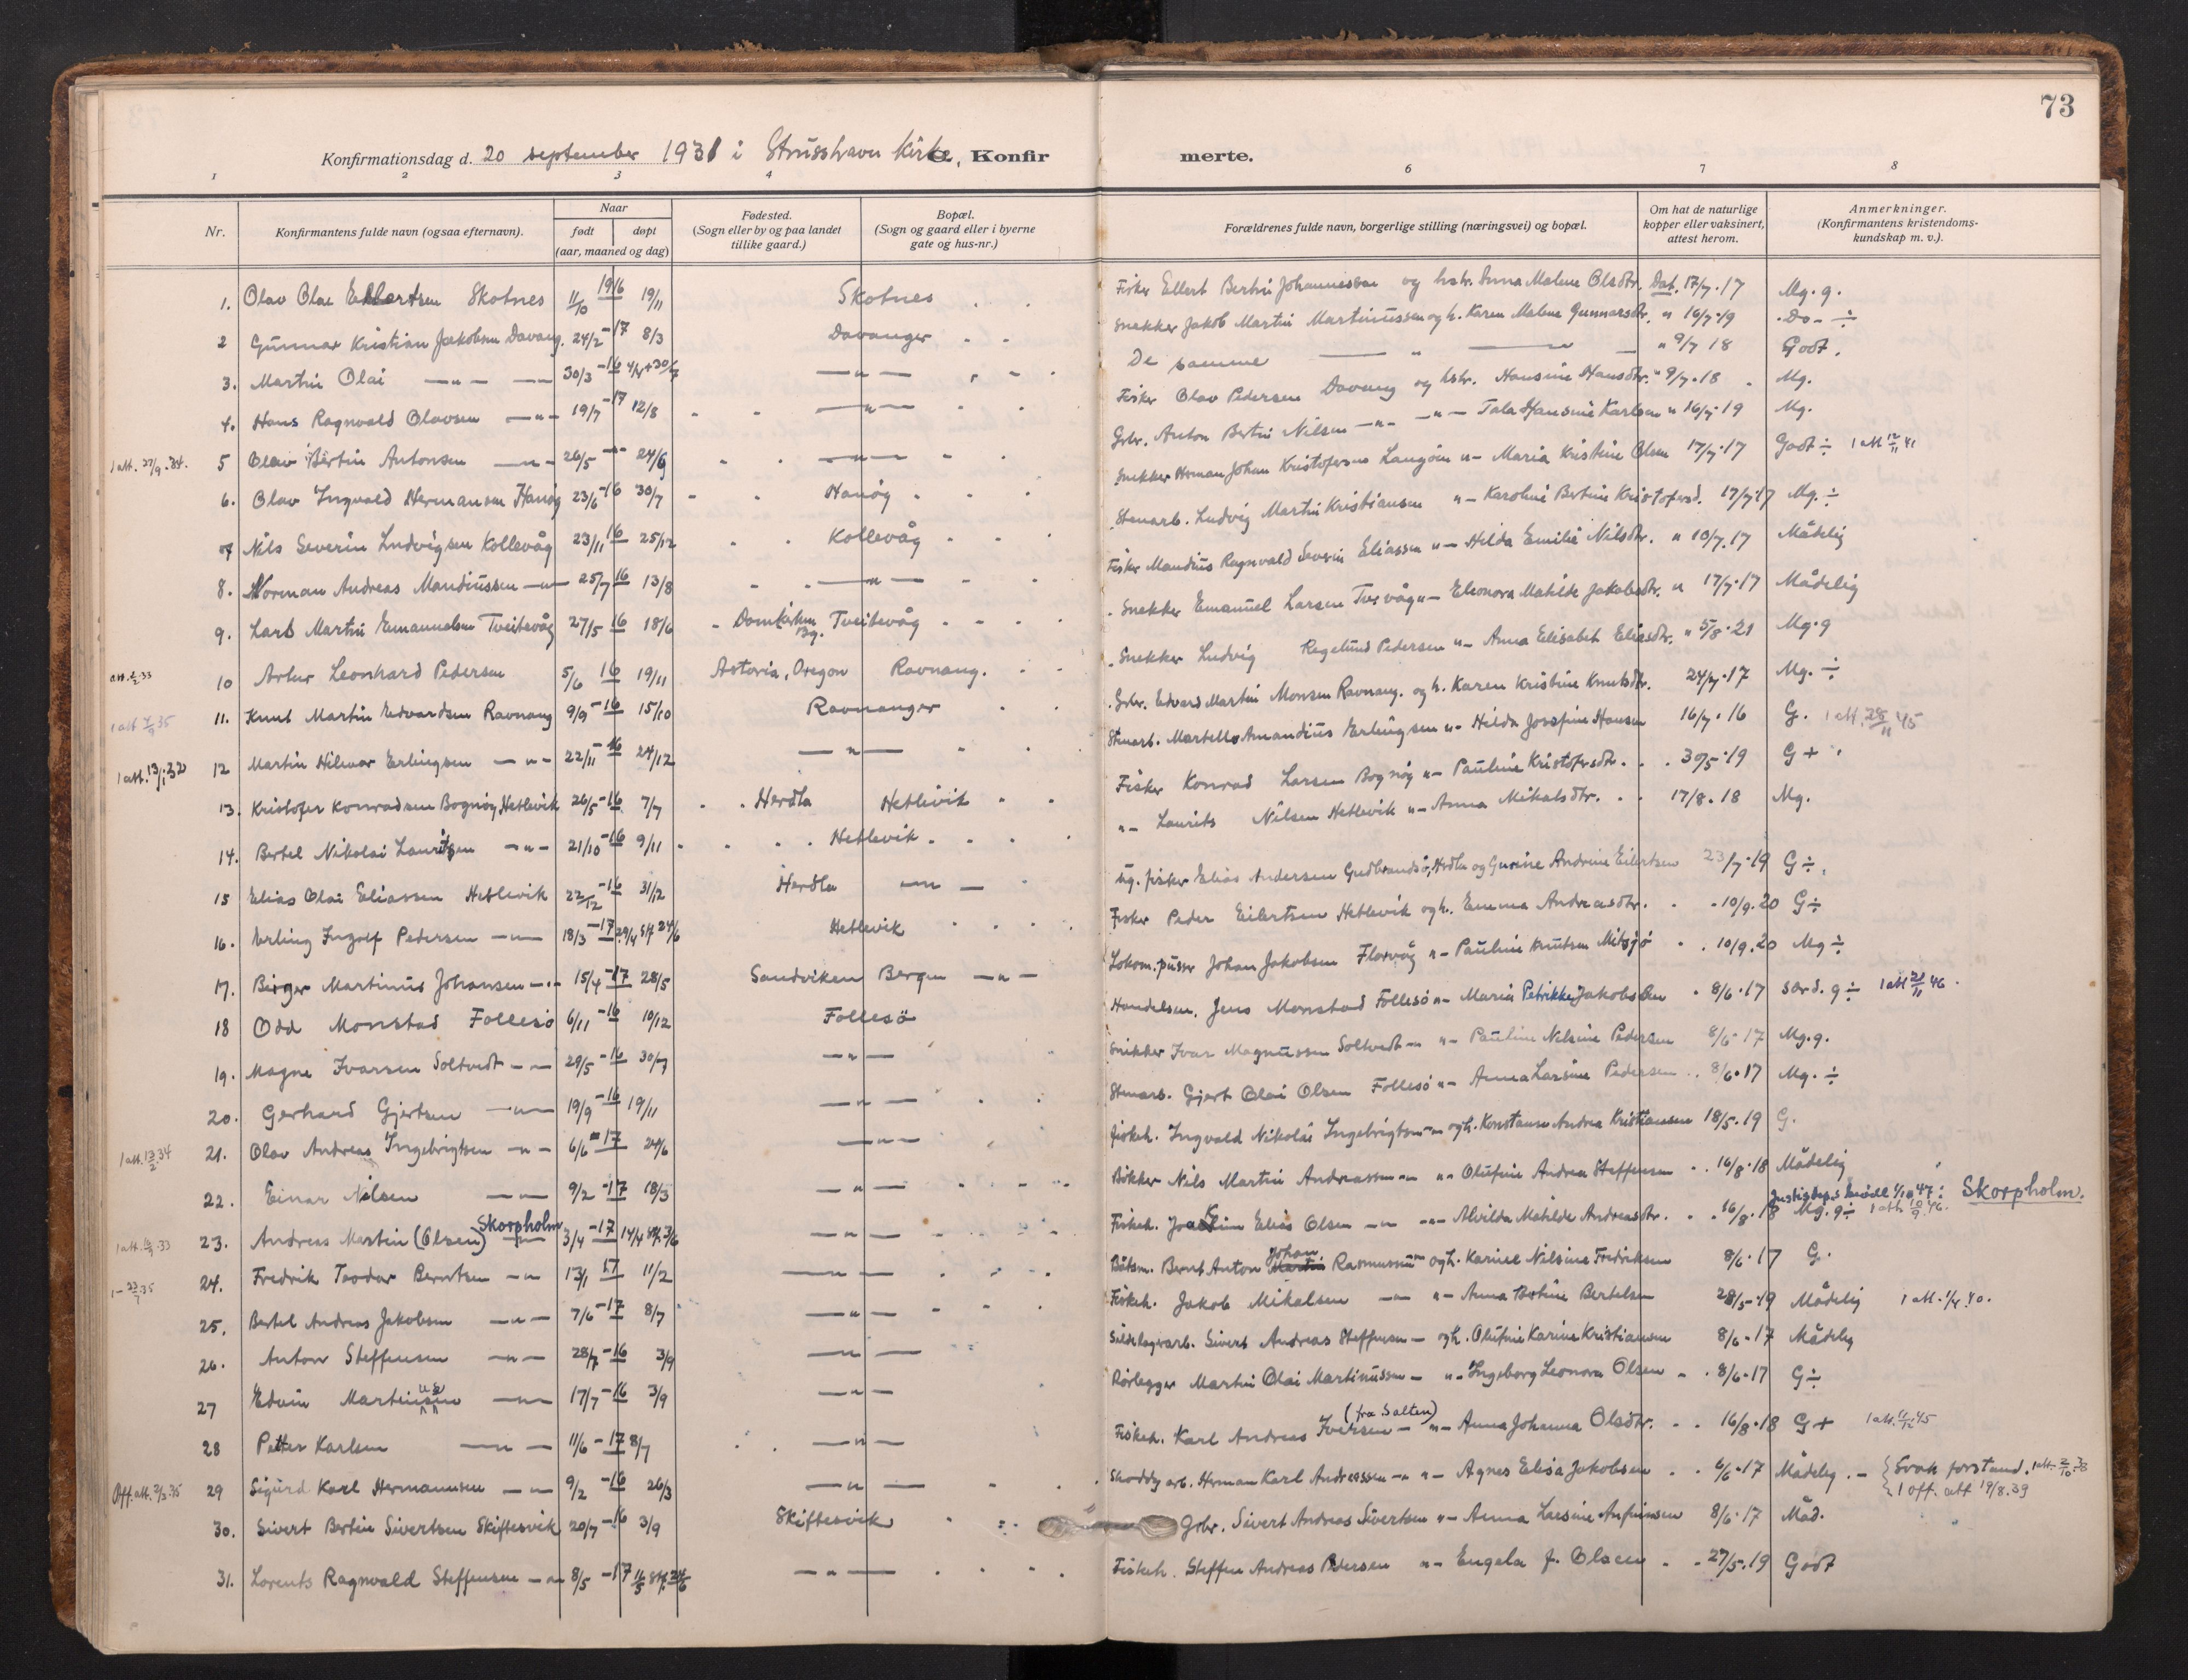 73
Konfirmationsdag d. 20 september 1931 i Strusshavn Kirke, Konfirmerte.
1 2 3 4 6 7 8
Nr.
Konfirmantens fulde navn (ogsaa efternavn).
Naar
født døpt
(aar, maaned og dag)
Fødested.
(Sogn eller by og paa landet
tillike gaard.)
Bopæl.
(Sogn og gaard eller i byerne
gate og hus-nr.)
Forældrenes fulde navn, borgerlige stilling (næringsvei) og bopæl.
Om hat de naturlige
kopper eller vaksinert,
attest herom.
Anmerkninger.
(Konfirmantens kristendoms-
kundskap m. v.).
1. Olav Olai Ellertsen Skotnes 11/10 1916 19/11 Skotnes Fisker Ellert Bertin Johannessen og hstr. Anna Malene Olsdtr. Dat. 17/7.17 Mg. g.
2 Gunnar Kristian Jakobsen Davang. 24/2 -17 8/3 Davanger Snekker Jakob Martin Martinussen og h. Karen Malene Gunnarsdtr. " 16/7.19 -Do- ÷
3. Martin Olai —"— 30/3 -16 —"— De samme —"— " 9/7 18 Godt.
4. Hans Ragnvald Olavsen —"— 19/7 -17 12/8 —"— Fisker Olav Pedersen Davang og hstr. Hansine Hansdtr. " 9/7.18 Mg.
1 att. 27/9.34. 5 Olav Bertin Antonsen —"— 26/5 -"- 24/6 —"— Grbr. Anton Bertin Nilsen —"— —"— Tala Hansine Karlsen " 16/7.19 Mg.
6. Olav Ingvald Hermansen Hanøy 23/6 -16 30/7 Hanøy Snekker Herman Johan Kristofersen Langøen "— Maria Kristine Olsen 17/7.17 Godt ÷ 1 att 12/11 41
7 Nils Severin Ludvigsen Kollevåg 23/11 16 25/12 Kollevåg Stenarb. Ludvig Martin Kristiansen "— Karoline Bertine Kristofersd. 17/7.17 Mg. ÷
8. Norman Andreas Mandiussen —"— 25/7 16 13/8 —"— Fisker Mandius Ragnvald Severin Eliassen "— Hilda Emilie Nilsdtr. " 10/7.17 Mådelig
9. Lars Martin Emanuelsen Tveitevåg 27/5 16 18/6 Domkirken Bg. Tveitevåg Snekker Emanuel Larsen Tvevåg "— Eleonora Matilde Jakobsdtr. " 17/7.17 Mådelig
att. 2/2.33 10 Artur Leonhard Pedersen 5/6 16 19/11 Astoria, Oregon Ravnang. Snekker Ludvig Regelund Pedersen "— Anna Elisabet Eliasdtr. " 5/8.21 Mg.g
11. Knut Martin Edvardsen Ravnang 9/9 -16 15/10 Ravnanger Grbr. Edvard Martin Monsen Ravnang. og h. Karen Kristine Knutsdtr. 24/7.17 Mg. ÷
1 att. 13/1.32 12 Martin Hilmar Erlingsen —"— 22/11 -16 24/12 —"— Stenarb. Martello Amandius Erlingsen "— Hilda Josefine Hansen 16/7.16 G. 1 att. 28/11 45
13. Kristofer Konradsen Bognøy, Hetlevik 26/5 -16 7/7 Herdla Hetlevik Fisker Konrad Larsen Bognøy "— Pauline Kristofersdtr. 30/5.19 G +
14. Bertel Nikolai Lauritsen —"— 21/10 -16 9/11 Hetlevik "— Laurits Nilsen Hetlevik "— Anna Mikalsdtr. 17/8.18 Mg.
15 Elias Olai Eliassen Hetlevik 22/12 -16 31/12 Herdla —"— ug. fisker Elias Andersen Gudbrandsø, Herdla og Gurine Andrine Eilertsen 23/7.19 G÷.
16. Erling Ingolf Pedersen —"— 18/3 -17 29/4 24/6 Hetlevik Fisker Peder Eilertsen Hetlevik og h. Emma Andreasdtr. 10/9.20 G÷
17. Birger Martinus Johansen —"— 15/4 -17 28/5 Sandviken Bergen —"— Lokom.pusser Johan Jakobsen Florvåg "— Pauline Knutsen Mitsjø 10/9.20 Mg ÷
18 Odd Monstad Follesø 6/11 -16 10/12 Follesø Handelsm. Jens Monstad Follesø "— Maria Petrikke Jakobsen 8/6.17 særd. g ÷
19. Magne Ivarsen Soltvedt —"— 29/5 -16 30/7 —"— Snikker Ivar Magnussen Soltvedt "— Pauline Nelsine Pedersen 8/6.17 Mg.g.
20. Gerhard Gjertsen —"— 19/9 -16 19/11 —"— Stenarb. Gjert Olai Olsen Follesø "— Anna Larsine Pedersen 8/6.17 Mg. ÷
1 att. 13/2.34 21. Olav Andreas Ingebrigtsen —"— 6/6 -17 24/6 —"— Fiskeh. Ingvald Nikolai Ingebrigtsen —"— og h. Konstanse Andrea Kristiansen 18/5.19 G.
22. Einar Nilsen —"— 9/2 -17 18/3 —"— Bökker Nils Martin Andreassen —"— Olufine Andrea Steffensen 16/8.18 Mådelig
23. Andreas Martin (Olsen) Skorpholm 3/4 -17 14/4 3/6 —"— Fiskeh. Joakim Elias Olsen —"— Alvilda Matilde Andreasdtr. 16/8.18 Mg. g÷ Skorpholm.
24. Fredrik Teodor Berntsen —"— 13/1 17 11/2 —"— Båtsm. Bernt Anton Johan Rasmussen og h. Karine Nilsine Fredriksen 8/6.17 G.
25. Bertel Andreas Jakobsen —"— 7/6 -17 8/7 —"— Fiskeh. Jakob Mikalsen —"— Anna Bertelsen 28/5.19 Mådelig 1 att. 1/4.40.
26. Anton Steffensen —"— 28/7 -16 3/9 —"— Sivert Andreas Steffensen — og h. Olufine Karine Kristiansen 8/6.17 Mådelig
27 Edvin Martinussen —"— 17/7 -16 3/9 —"— Rørlegger Martin Olai Martinussen — "— Ingeborg Leonora Olsen 8/6.17 G÷
28 Petter Karlsen —"— 11/6 -17 8/7 —"— Fiskeh. Karl Andreas Iversen (fra Salten) —"— Anna Johanna Olsdtr. 16/8.18 G +
Off. att. 2/3.35 29 Sigurd Karl Hermannsen —"— 9/2 -16 26/3 —"— Shoddyarb. Herman Karl Andreassen —"— Agnes Elisa Jakobsen 6/6.17 Mådelig. — Svak forstand. 1 off. att 19/8.39
30. Sivert Bertin Sivertsen Skiftesvik 20/7 -16 3/9 Skiftesvik Grbr. Sivert Andreas Sivertsen "— Anna Larsine Anfinnsen 8/6.17 Måd.
31. Lorents Ragnvald Steffensen —"— 8/5 -17 —"— Fiskeh. Steffen Andreas Pedersen "— Engela f. Olsen 27/5.19 Godt